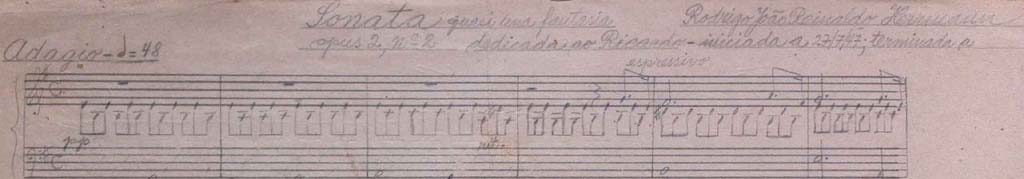 Sonata quasi una fantasia Rodrigo João Reinaldo Hermann
opus 2, nº 2 dedicada ao Ricardo - iniciada a 27/7/47; terminada a
Adagio - = 48
espressivo
pp